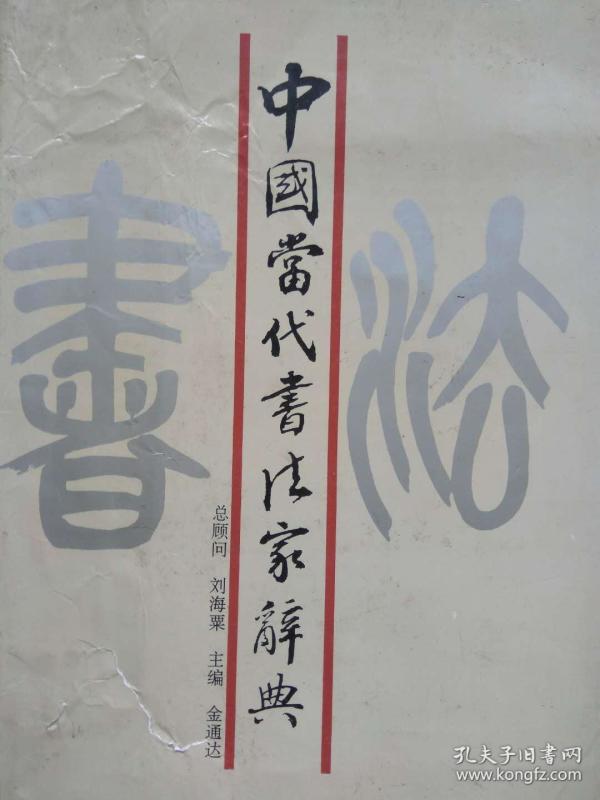 中國當代書法家辭典
書法
总顾问 刘海粟 主编 金通达
孔夫子旧书网
www.kongfz.com